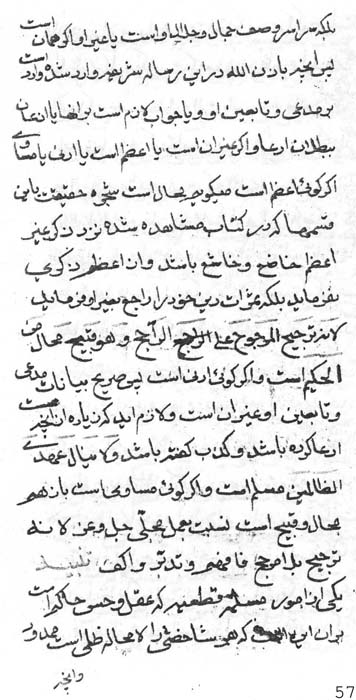 بلکه سراسر وصف جمال و جلال او است یا غیر او اگر همان است
پس آنچه باذن الله در این رساله بر غیر وارد شد وارد است
بر مدعی و تابعین او و یا جواب لازم است بر آنها یا اذعان
ببطلان ادعا و اگر غیر آن است یا اعظم است یا ادنی یا مساوی
اگر گوئی اعظم است میگویم محال است شجره حقیقت باین
قسمها که در کتاب مشاهده شده نزد ذکر غیر
اعظم خاضع و خاشع باشد و از اعظم ذکری
نفرماید بلکه ثمرات دین خود را راجع بغیر او فرماید
لانه ترجیح المرجوح علی الراجح و هو قبیح محال من
الحکیم است و اگر گوئی ادنی است پس صریح بیانات مدعی
و تابعین او غیر آن است و لازم آید که زیاده از آنچه هست
ادعا کرده باشد و کذب گفته باشد ولا ینال عهدی
الظالمین مسلم است و اگر گوئی مساوی است باز هم
محال و قبیح است نسبت بعمل محلی جل و عز لانه
ترجیح بلا مرجح فافهم و تدبر و اکف
یکی از امور مسلمه قطعیه که عقل و حس حاکم است
بر آن این است که هر شاخصی را لا محاله ظلی است
57